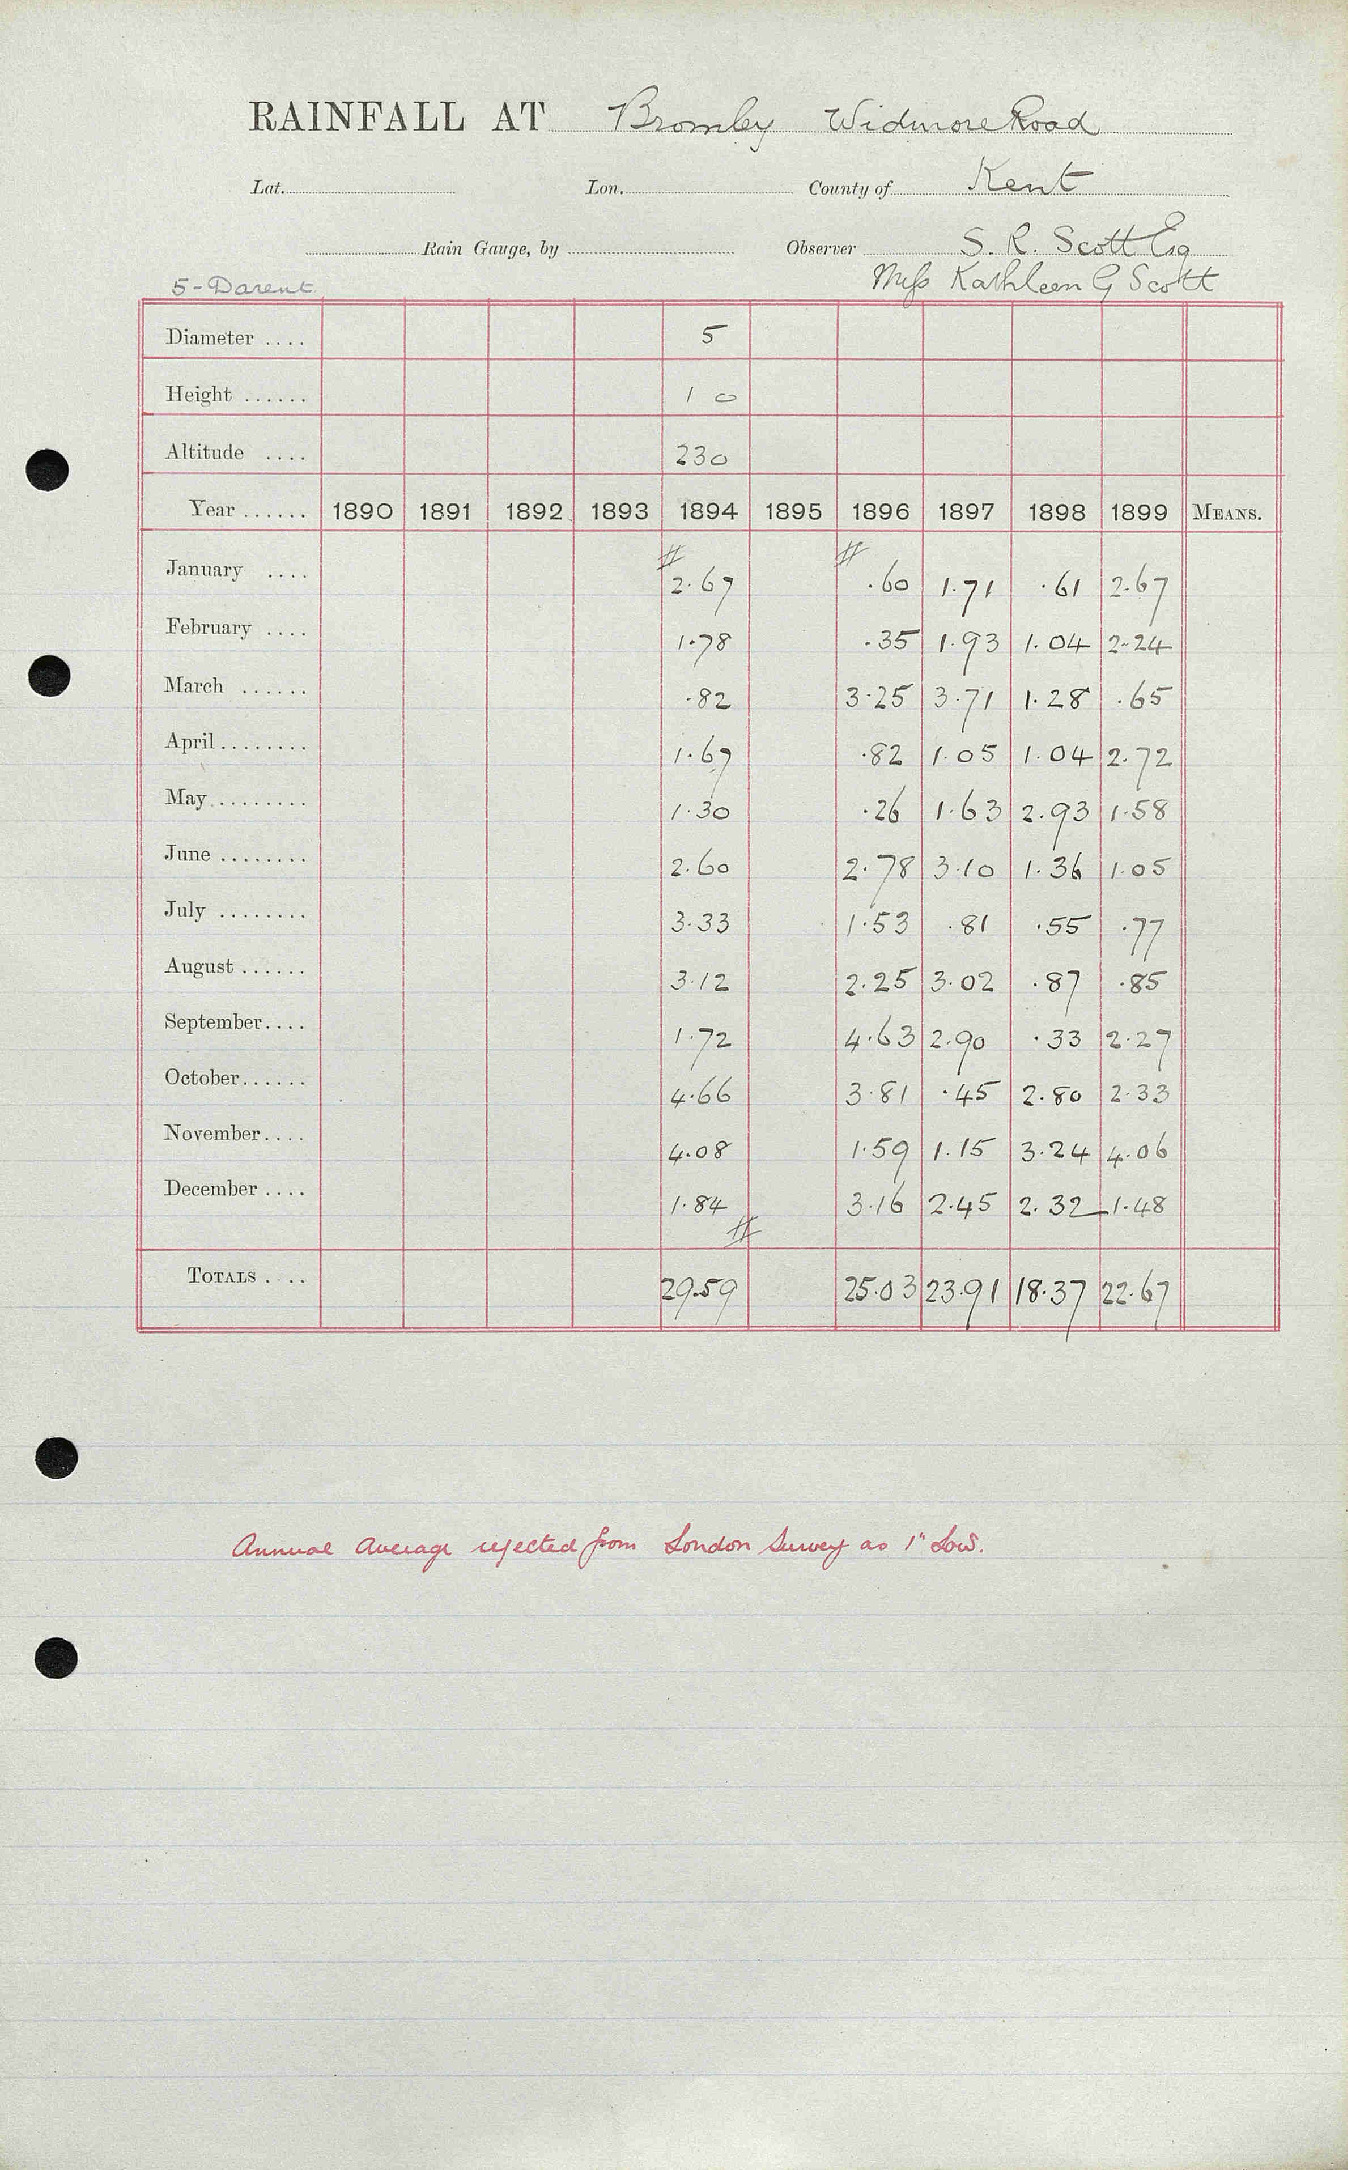 RAINFALL AT Bromley Widmore Road
Lat. Lon. County of Kent
Rain Gauge, by Observer S. R. Scott Esq
5 - Darent Miss Kathleen G Scott
Diameter .... 5
Height ...... 1 0
Altitude .... 230
Year ...... 1890 1891 1892 1893 1894 1895 1896 1897 1898 1899 MEANS.
January .... # 2.67 # .60 1.71 .61 2.67
February .... 1.78 .35 1.93 1.04 2.24
March ...... .82 3.25 3.71 1.28 .65
April ........ 1.67 .82 1.05 1.04 2.72
May ......... 1.30 .26 1.63 2.93 1.58
June ........ 2.60 2.78 3.10 1.36 1.05
July ........ 3.33 1.53 .81 .55 .77
August ...... 3.12 2.25 3.02 .87 .85
September .... 1.72 4.63 2.90 .33 2.27
October ...... 4.66 3.81 .45 2.80 2.33
November .... 4.08 1.59 1.15 3.24 4.06
December .... 1.84 # 3.16 2.45 2.32 1.48
TOTALS .... 29.59 25.03 23.91 18.37 22.67
Annual Average rejected from London Survey as 1" Low.